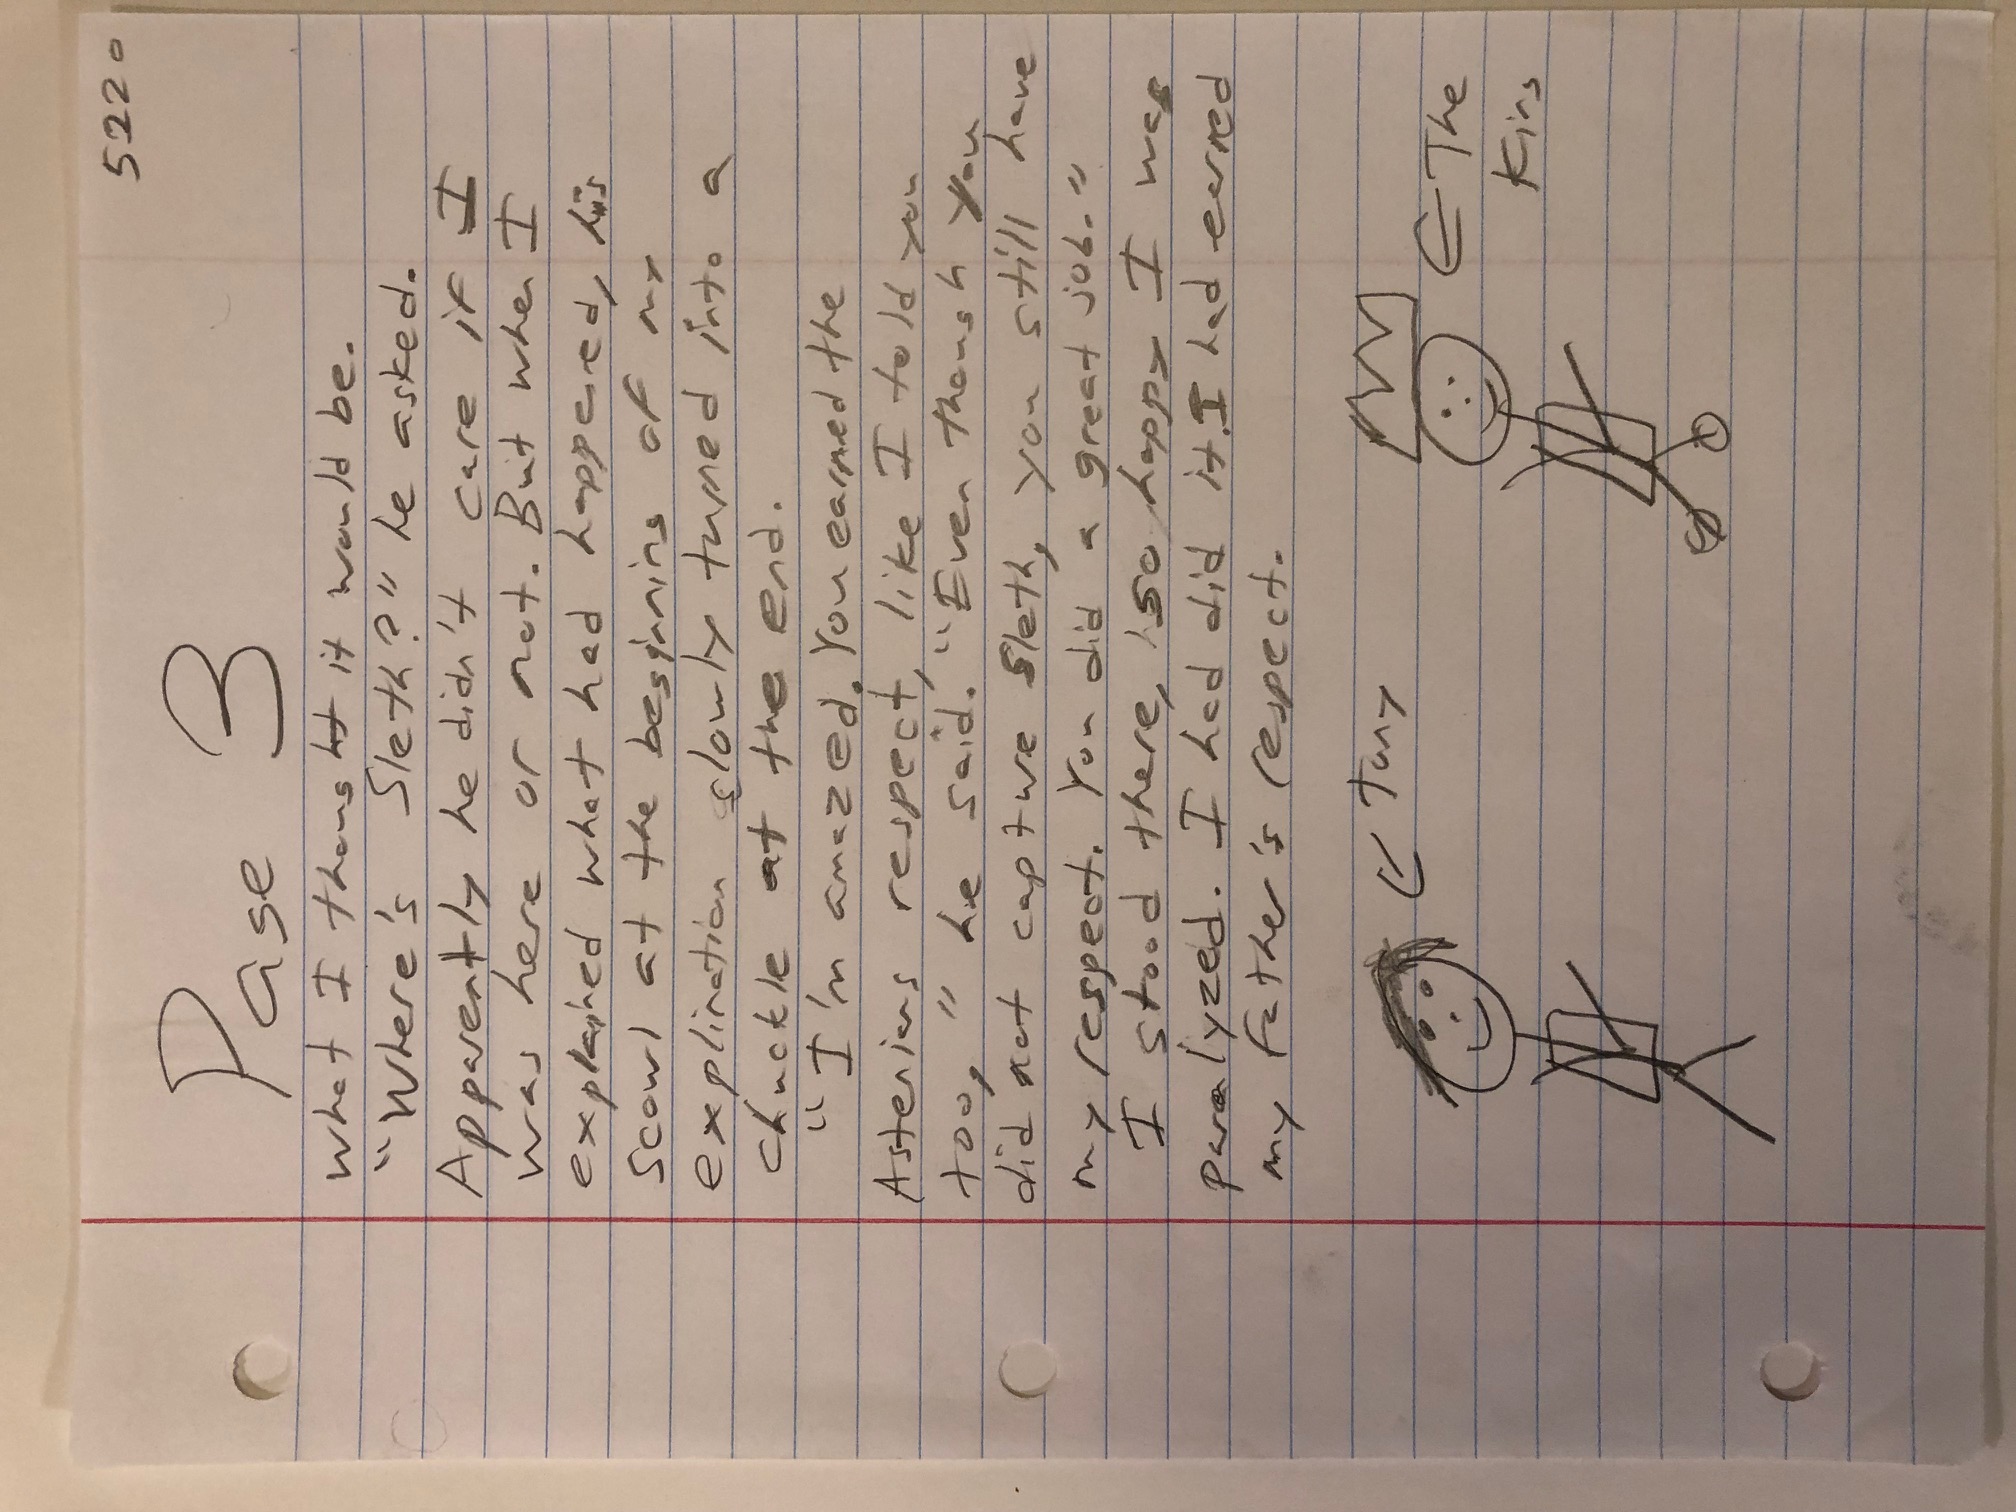 5220
Page 3
what I thought it would be.
"Where's Sleth?" he asked.
Apparently he didn't care if I
was here or not. But when I
explained what had happened, his
scowl at the beginning of my
explination slowly turned into a
chuckle at the end.
"I'm amazed. You earned the
Astenians respect, like I told you
too," he said. "Even though you
did not capture Sleth, you still have
my respect. You did a great job."
I stood there, so happy I was
paralyzed. I had did it. I had earned
my father's respect.
Tony
The
King